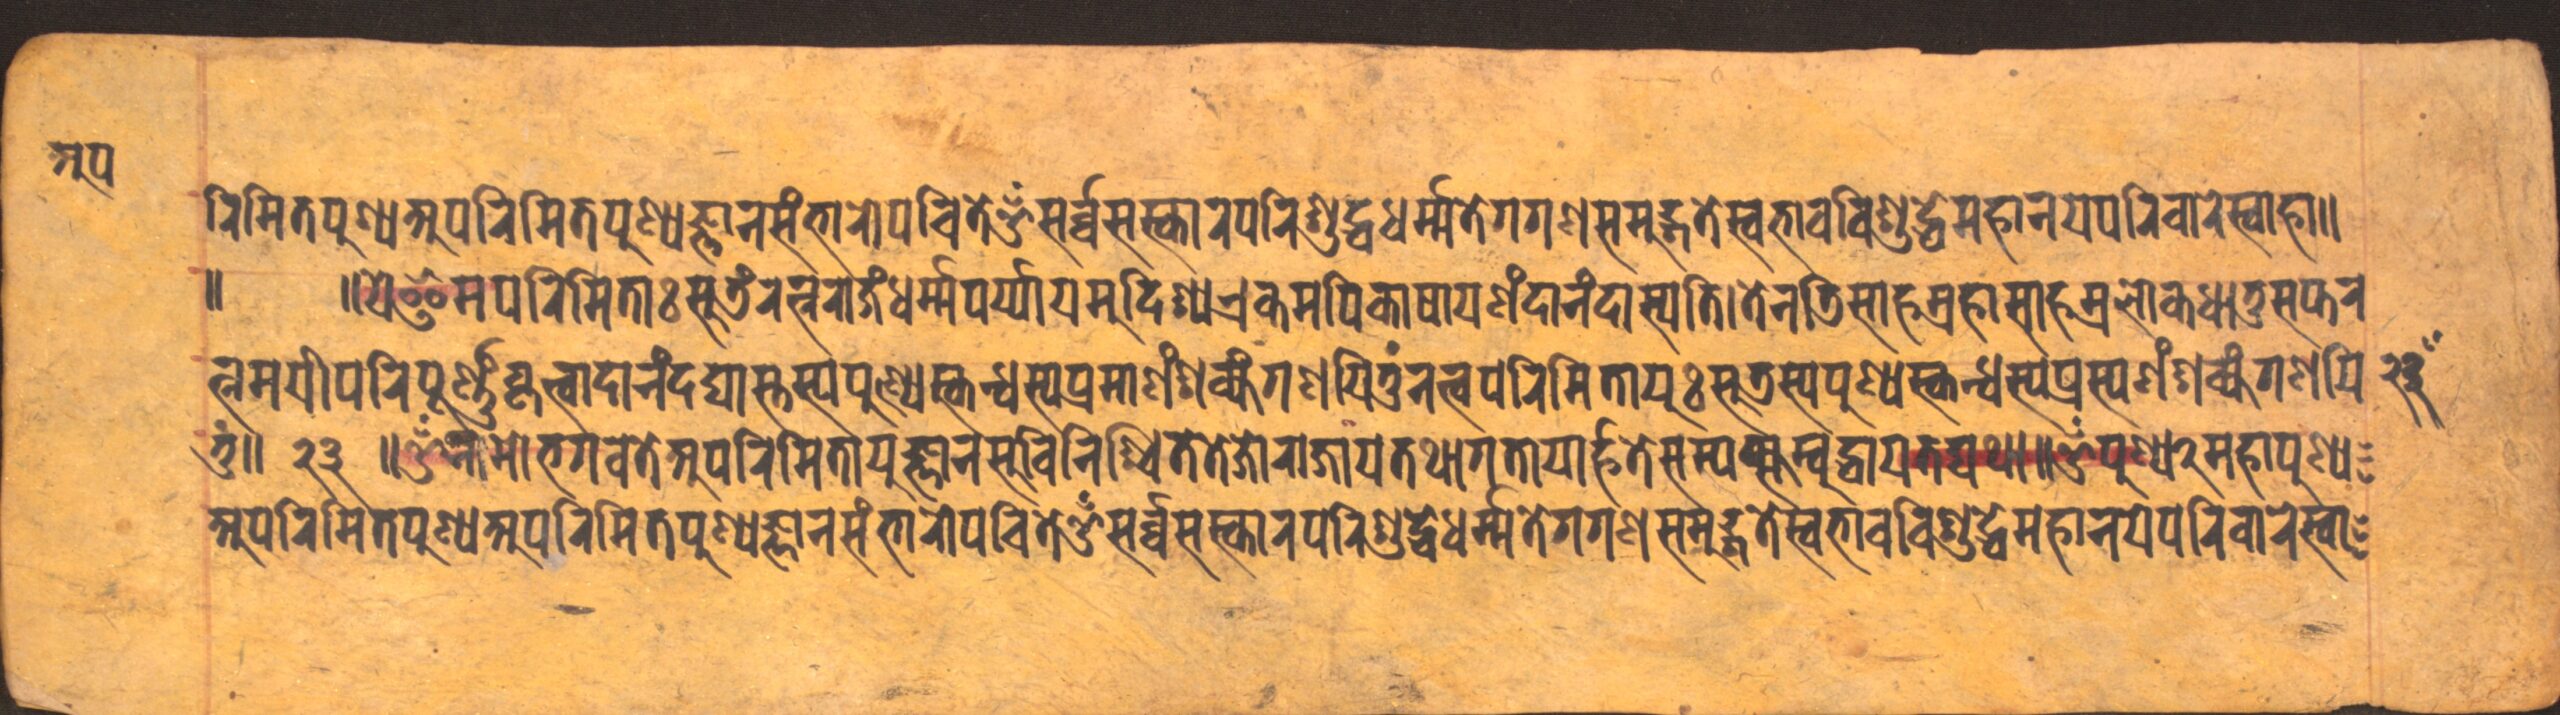 अप
रिमितपुण्यअपरिमितपुण्यज्ञानसंभारोपचिते ॐ सर्व्वसस्कारपरिशुद्धधर्म्मतेगगणसमुद्गतेस्वभावविशुद्धेमहानयपरिवारेस्वाहा॥
॥ ॥य ॐ मपरिमिताः सूत्रंरत्नराजंधर्म्मपर्य्यायमुदिश्यएकमपिकाषायणंदानंदास्यति।तेनत्रिसाहस्रहासाहस्रलोकधातुसप्तर
त्नमयीपरिपूर्ण्णंकृत्वादानंदद्यास्तस्यपुण्यस्कन्धस्यप्रमाणंशक्यंगणयितुंनत्वपरिमितायुःसूत्रस्यपुण्यस्कन्धस्यप्रस्यशंशक्यंगणयि
२३
तुं॥ २३ ॥ॐ नमोभगवतेअपरिमितायुज्ञानसुविनिश्चिततेजोराजायतथागतायार्हतेसम्यक्सम्बुद्धायतद्यथा॥ॐ पुण्य२महापुण्य
अपरिमितपुण्यअपरिमितपुण्यज्ञानसंभारोपचिते ॐ सर्व्वसस्कारपरिशुद्धेधर्म्मतेगगणसमुद्गतेस्वभावविशुद्धेमहानयेपरिवारेस्वा